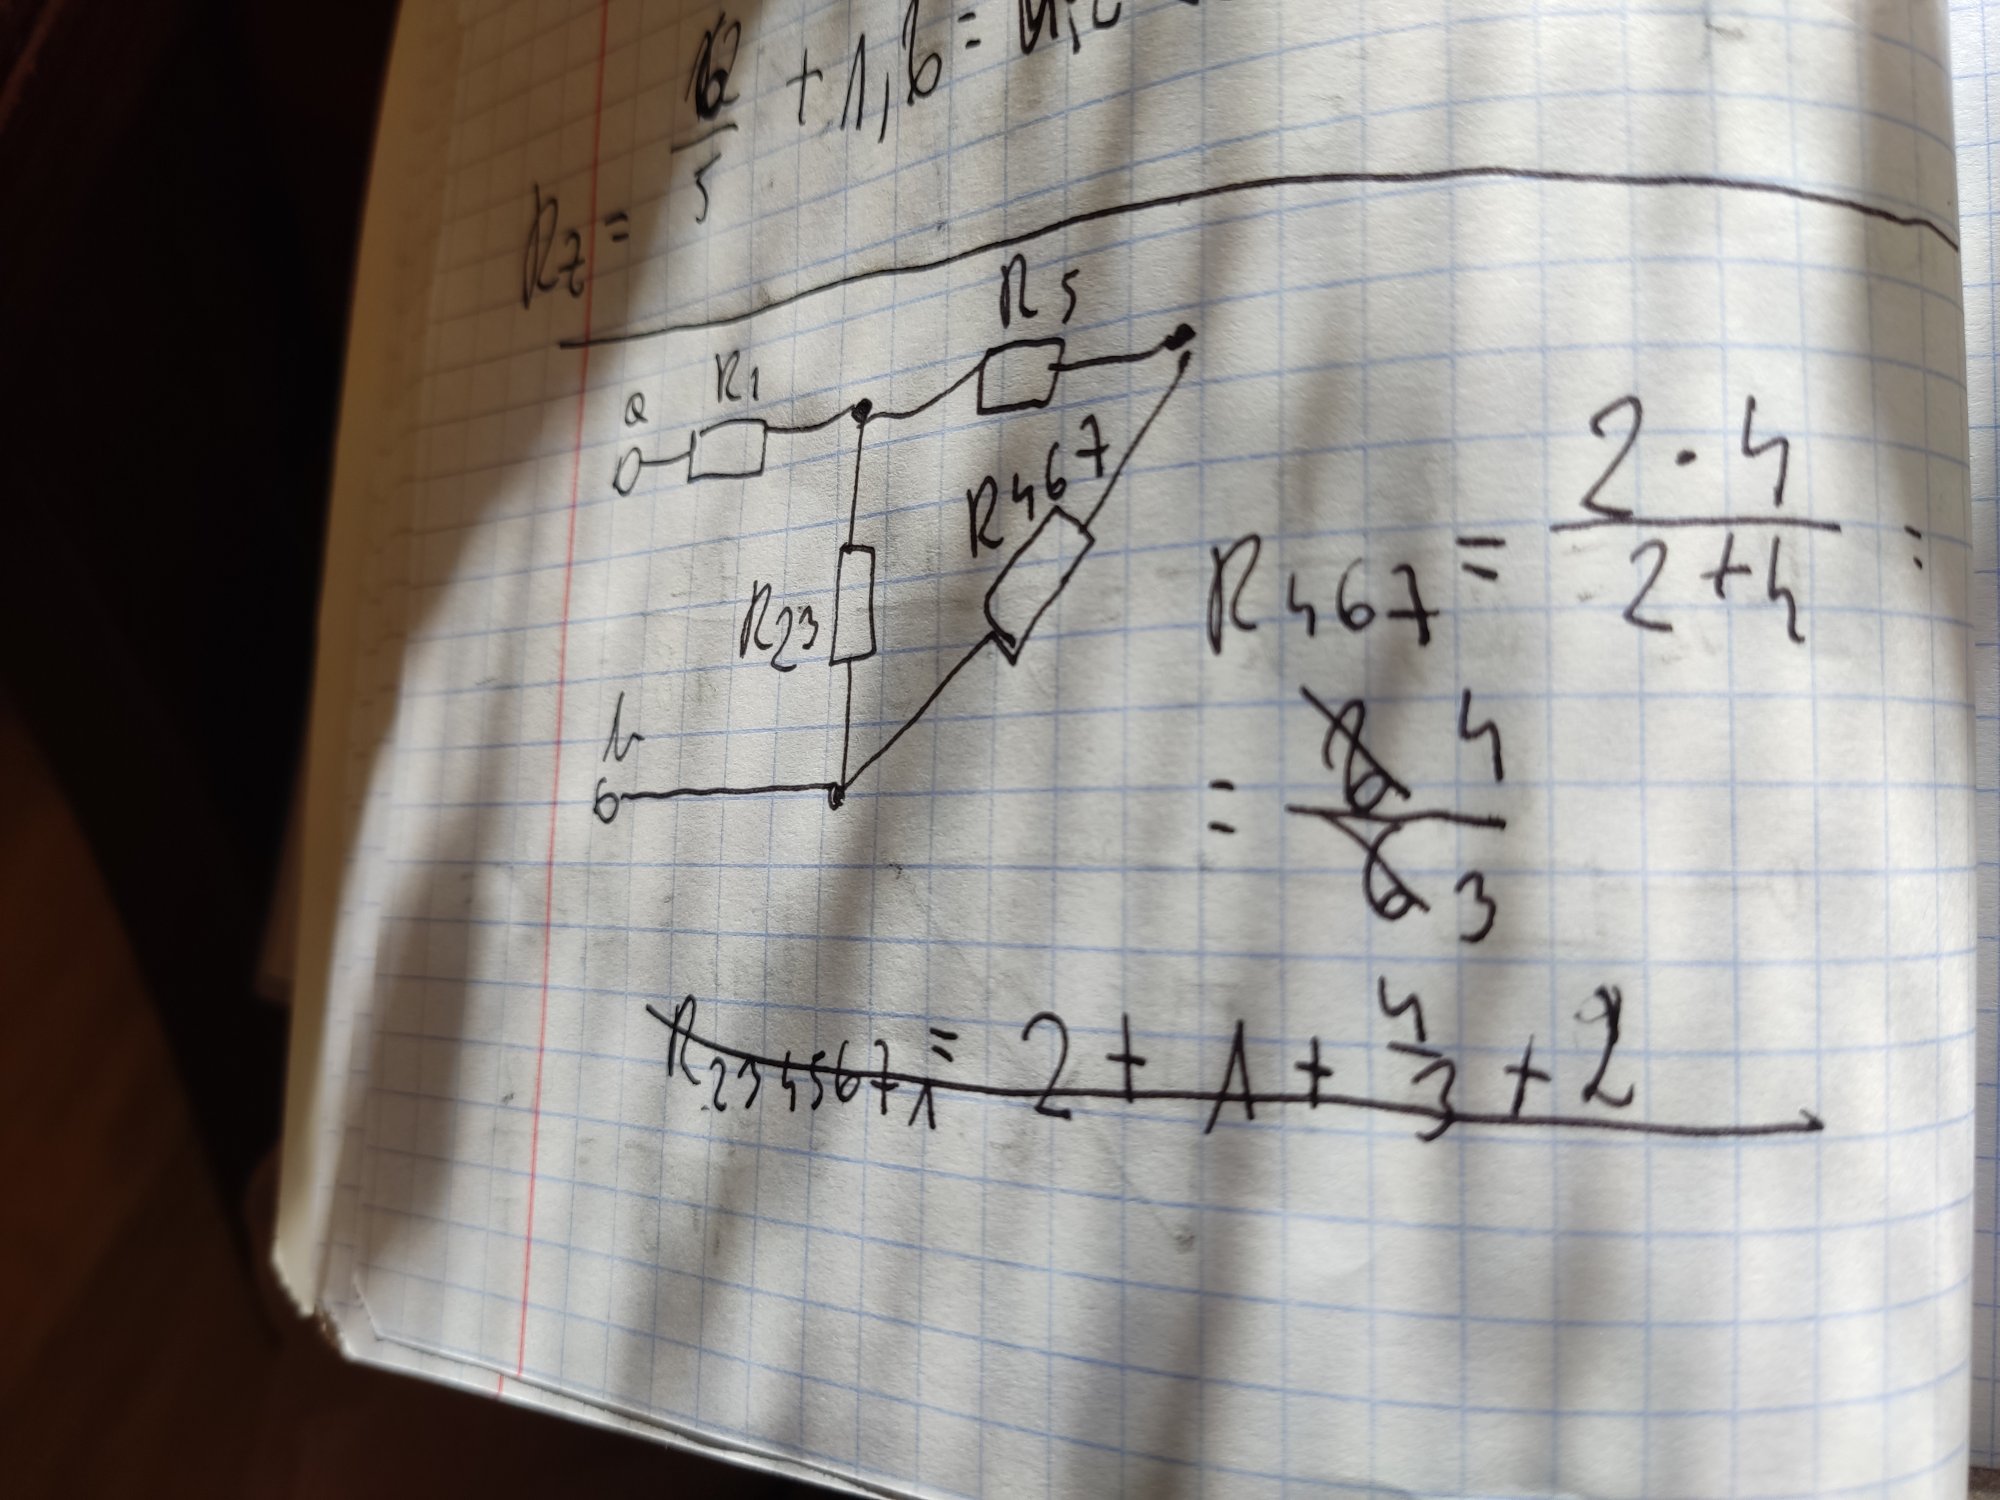 + 1,6 =
5
Rz =
R5
R1
a
R467
R23
b
R467 = 2 · 4 / 2 + 4 =
= 8 4 / 6 3
R2345671 = 2 + 1 + 4/3 + 2